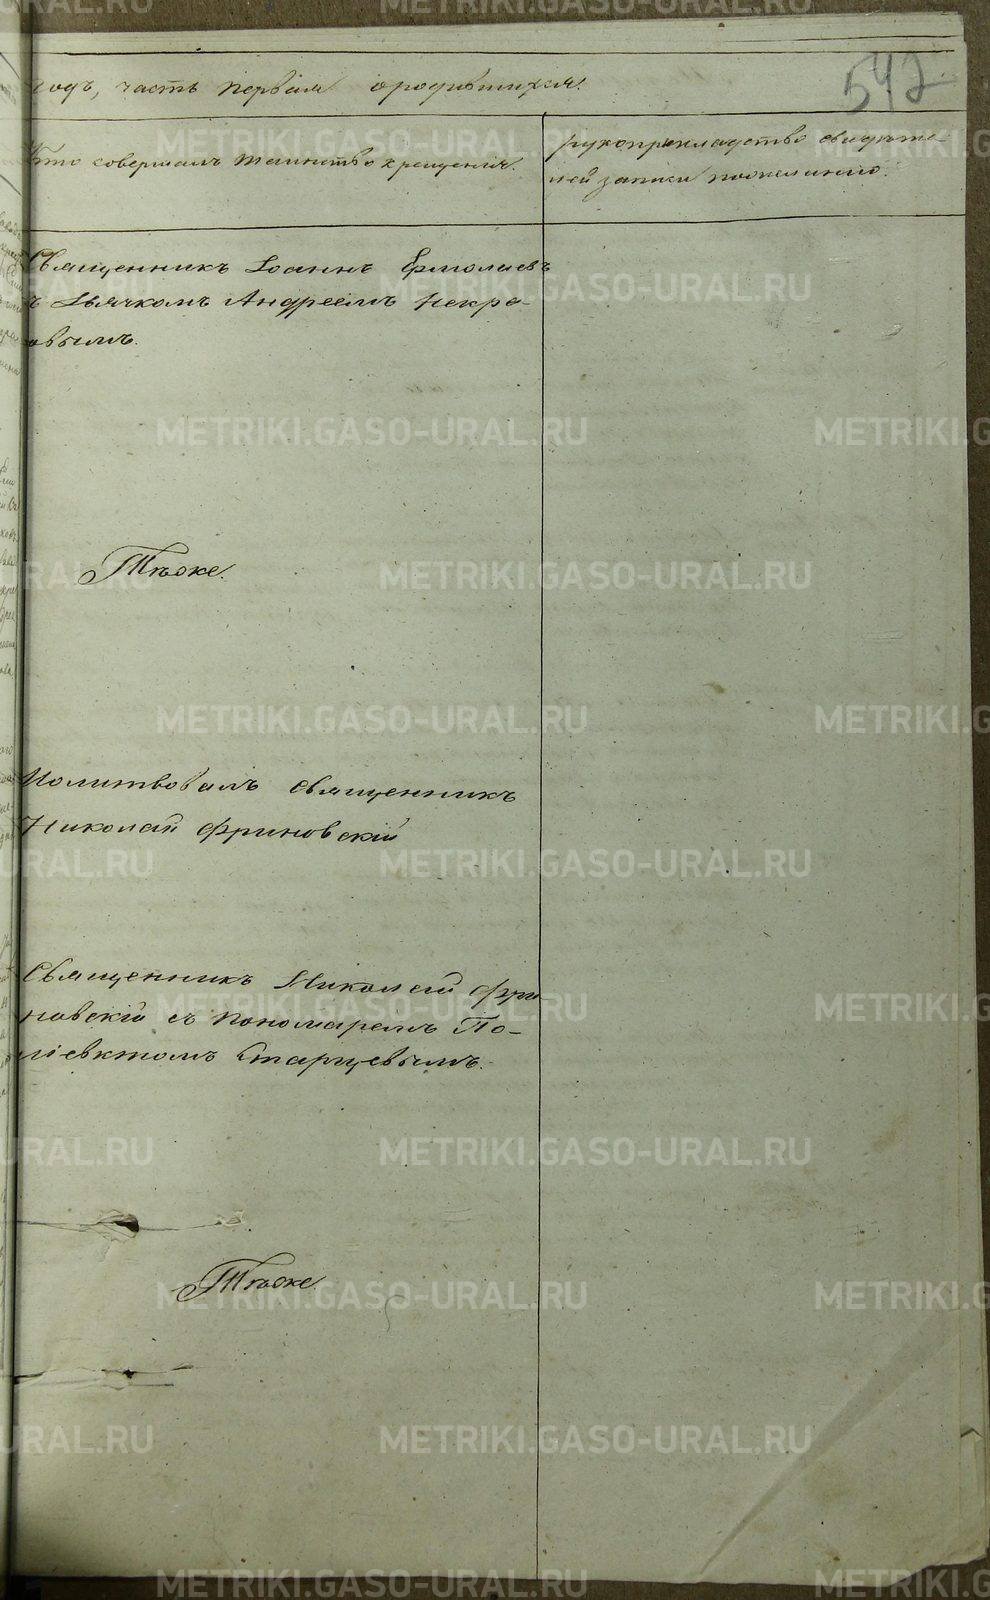 годъ, часть первая ородившихся.
542
Кто совершалъ таинство крещенія.
рукоприкладство свидѣте-
лей записи по желанію.
Священникъ Іоаннъ Ермолаевъ
съ Дьячкомъ Андреемъ Некра-
совымъ.
Тѣже.
Молитвовалъ священникъ
Николай Фриновскій
Священникъ Николай Фри
новскій съ пономаремъ По-
ліевктомъ Старцевымъ.
Тѣже.
METRIKI.GASO-URAL.RU